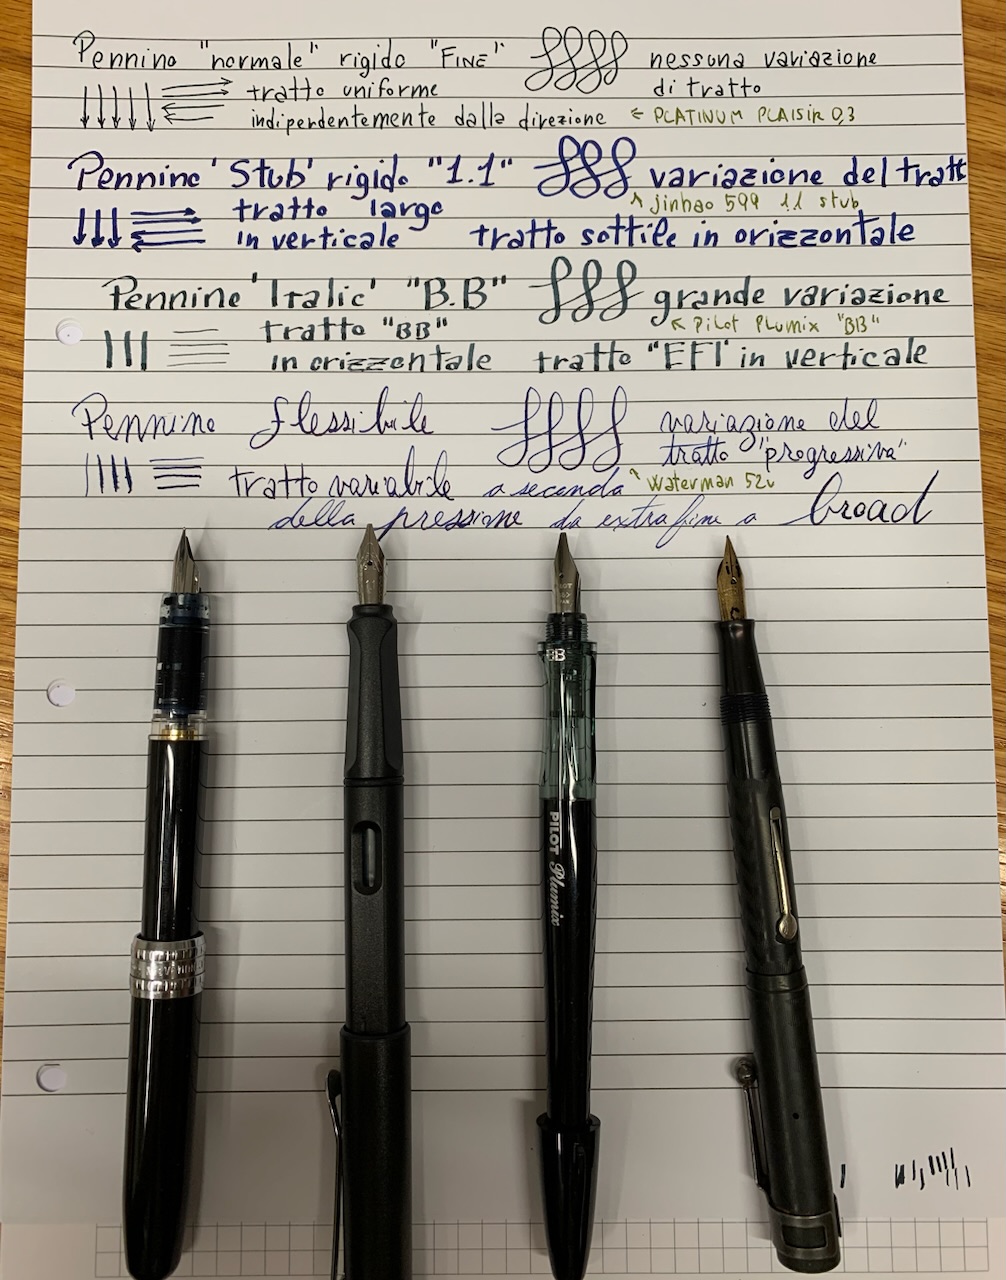 Pennino "normale" rigido "FINE" nessuna variazione
tratto uniforme di tratto
indipendentemente dalla direzione ← PLATINUM PLAISIR 0,3
Pennino 'Stub' rigido "1.1" variazione del tratt
tratto largo ↖ Jinhao 599 1.1 stub
in verticale tratto sottile in orizzontale
Pennino 'Italic' "B.B" grande variazione
tratto "BB" ↖ Pilot Plumix "BB"
in orizzontale tratto "EF" in verticale
Pennino flessibile variazione del
tratto "progressiva"
tratto variabile a seconda ↖ Waterman 52v
della pressione da extrafine a broad
BB
PILOT Plumix